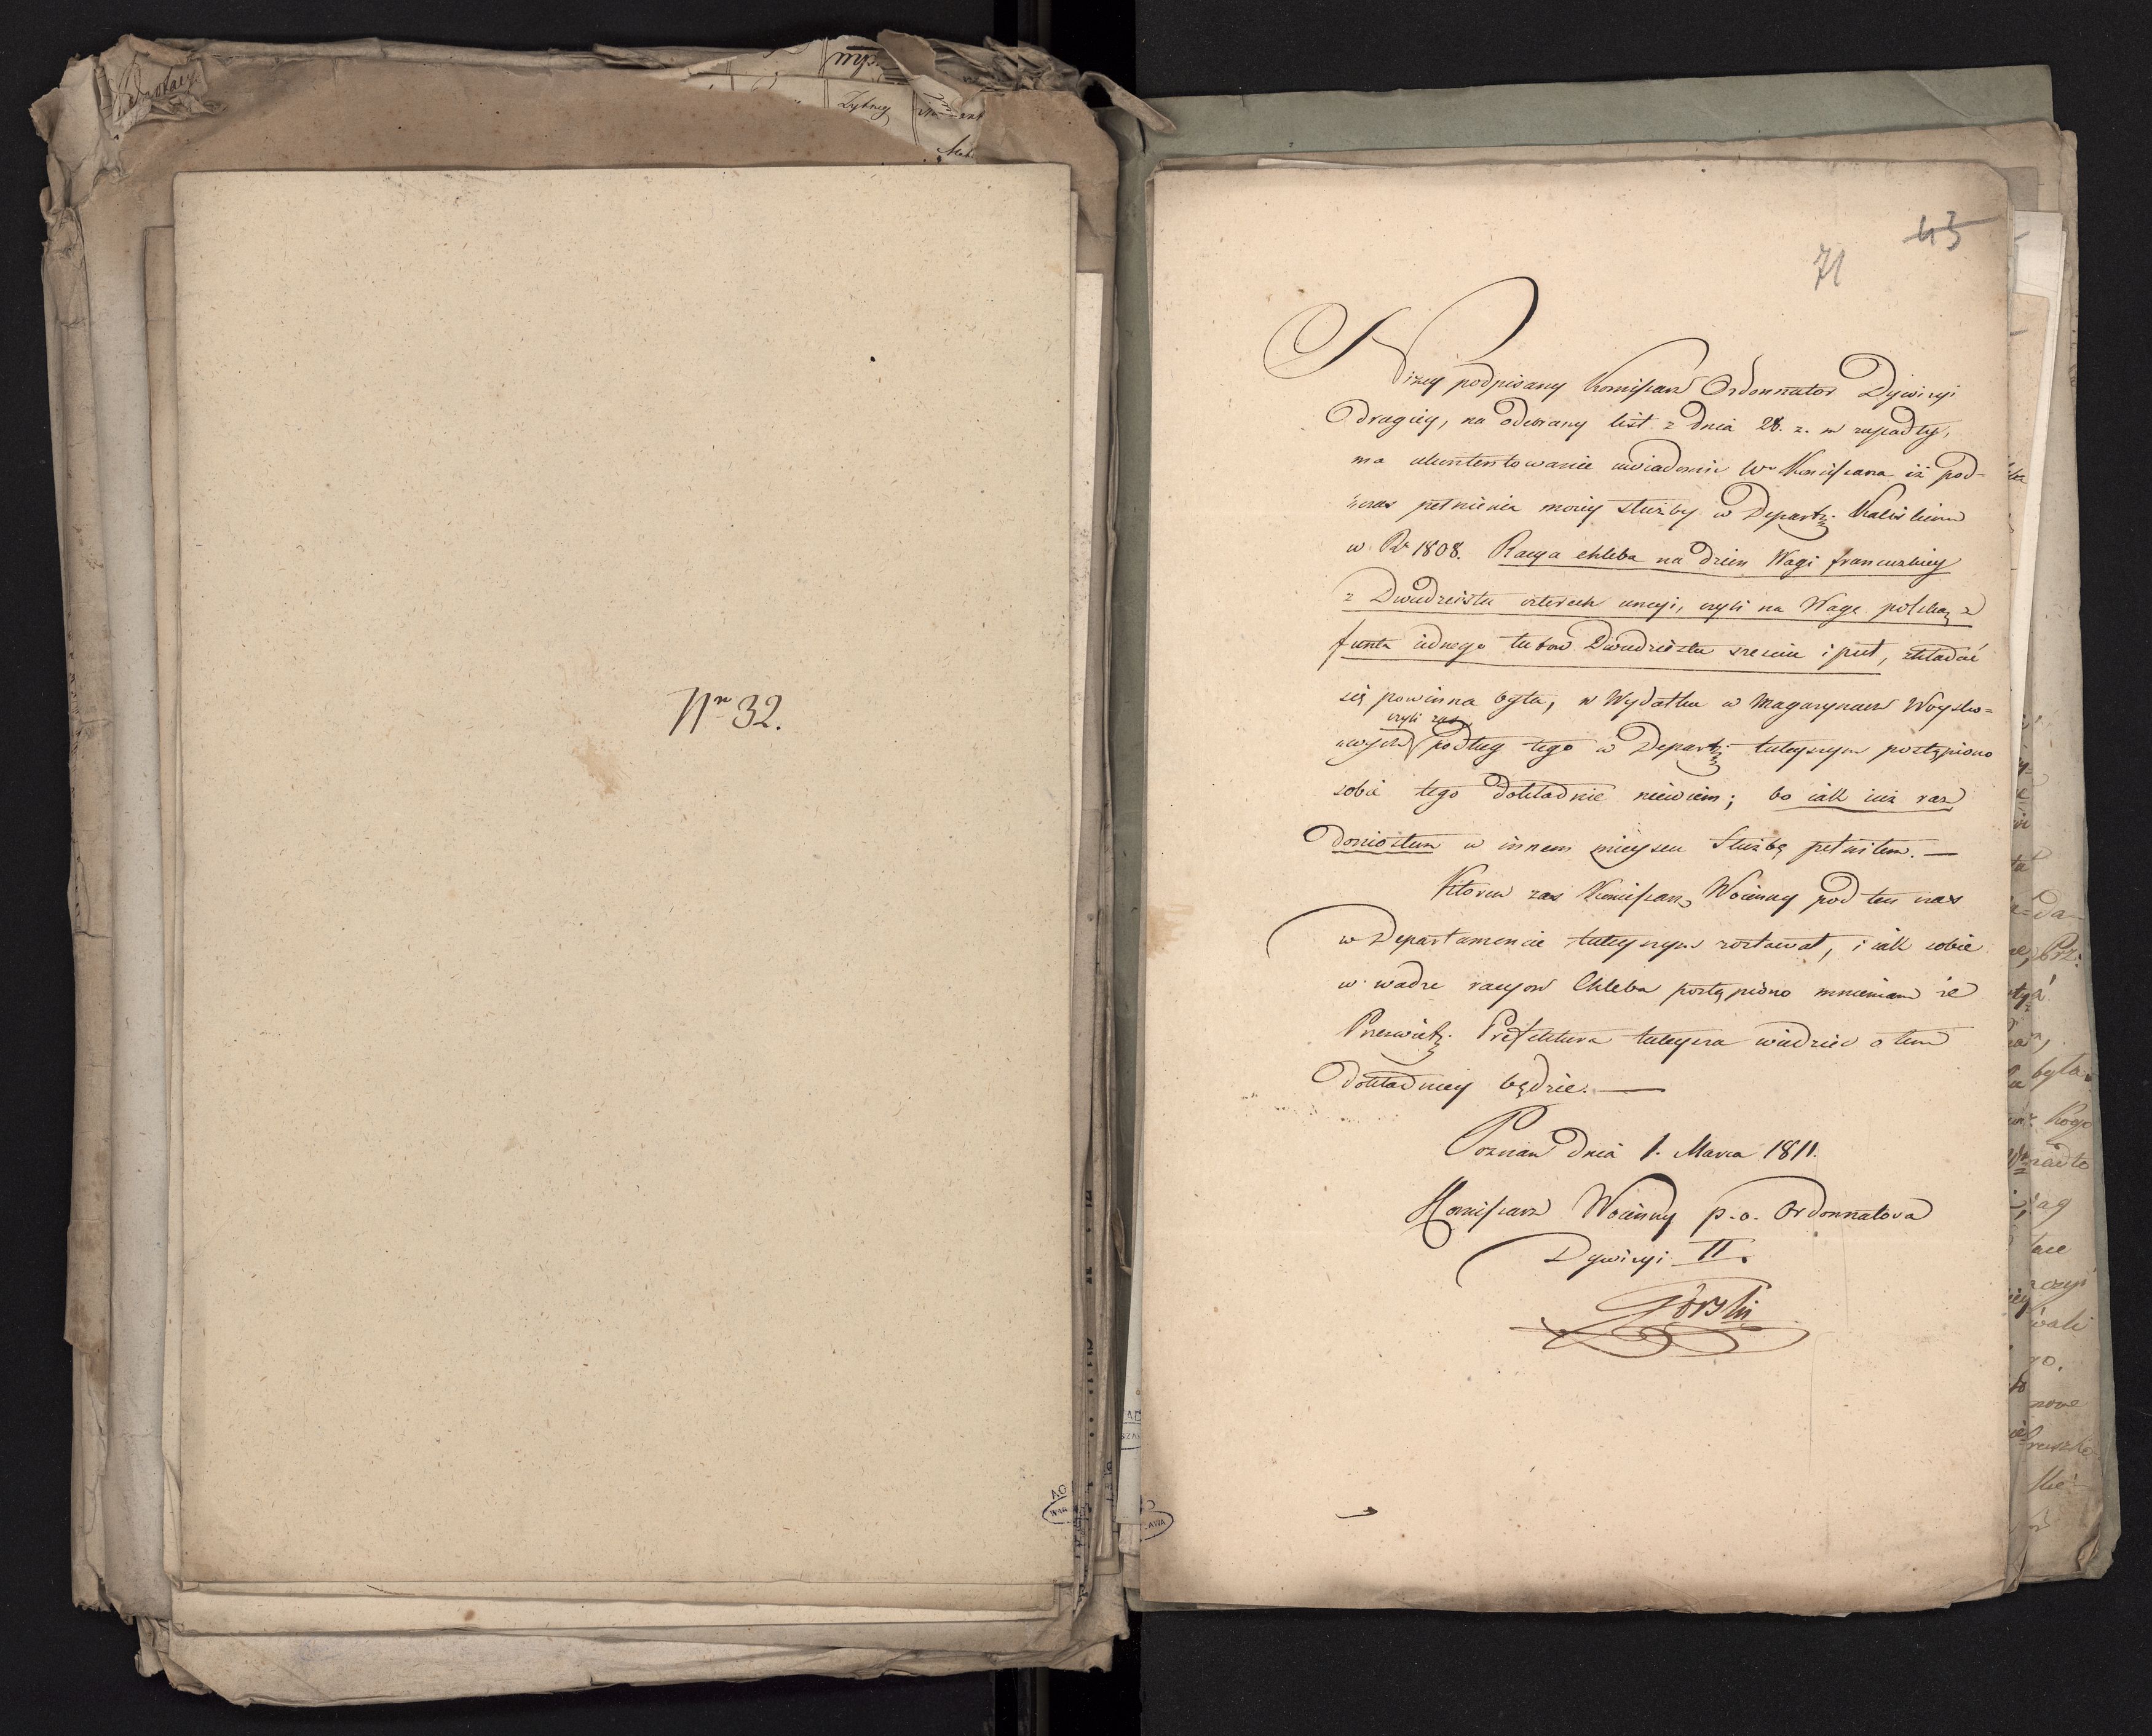 Nr 32.
43
71
Niżey podpisany Komissarz Ordonnator Dywizyi
drugiey, na odebrany list z dnia 28. z. m
ma ukontentowanie uwiadomić Wo Komissarza iż pod-
czas pełnienia moiey służby w Departz. Kaliskim
w Rr 1808. Racya chleba na dzień Wagi francuzkiey
z Dwudziestu czterech uncyi, czyli na Wagę polską z
funta iednego łutow Dwudziestu sześciu i puł, składać
się powinna była, w Wydatku w Magazynach Woysko=
czyli zaś
wych podług tego w Departz. tuteyszym postąpiono
sobie tego dokładnie niewiem; bo iak iuż raz
doniosłem w innem mieyscu Służbę pełniłem. —
Ktoren zaś Komissarz Woienny pod ten czas
w Departamencie tuteyszym zostawał, i iak sobie
w wadze racyow Chleba postąpiono mniemam że
Prześwietz. Prefektura tuteysza wiedzieć o tem
dokładniey będzie. —
Poznań dnia 1. Marca 1811.
Komissarz Woienny p. o. Ordonnatora
Dywizyi II.
Górski